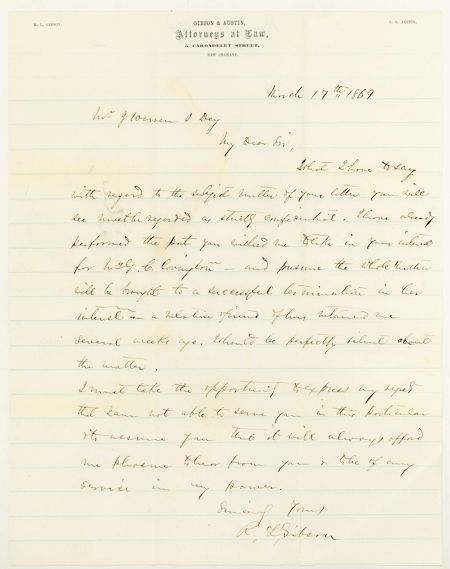 R. L. GIBSON.
GIBSON & AUSTIN,
Attorneys at Law,
5 CARONDELET STREET,
NEW ORLEANS.
March 17th 1869
Mr J Warren S Day
My Dear Sir,
What I have to say
with regard to the subject matter of your letter you will
see must be regarded as strictly confidential. I have already
performed the part you wished me to take in your
for Mrs G. C. Covington — and presume the whole matter
will be brought to a successful termination in her
interest — a relative & friend of hers retained me
several weeks ago. I should be perfectly silent about
the matter.
I must take the opportunity to express my regret
that I am not able to serve you in this particular
& to assure you that it will always afford
me pleasure to hear from you & to be of any
service in my power.
Sincerely Yours
R. L. Gibson